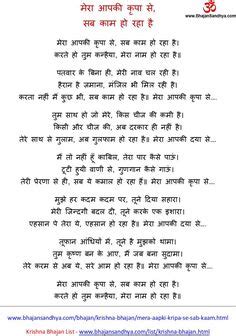 मेरा आपकी कृपा से,
सब काम हो रहा है
www.BhajanSandhya.com
मेरा आपकी कृपा से, सब काम हो रहा है।
करते हो तुम कन्हैया, मेरा नाम हो रहा है॥
पतवार के बिना ही, मेरी नाव चल रही है।
हैरान है ज़माना, मंजिल भी मिल रही है।
करता नहीं मैं कुछ भी, सब काम हो रहा है॥ मेरा आपकी कृपा से...
तुम साथ हो जो मेरे, किस चीज की कमी है।
किसी और चीज की, अब दरकार ही नहीं है।
तेरे साथ से गुलाम, अब गुलफाम हो रहा है॥ मेरा आपकी दया से...
मैं तो नहीं हूँ काबिल, तेरा पार कैसे पाऊं।
टूटी हुयी वाणी से, गुणगान कैसे गाऊं।
तेरी प्रेरणा से ही, सब ये कमाल हो रहा हैं॥ मेरा आपकी कृपा से...
मुझे हर कदम कदम पर, तूने दिया सहारा।
मेरी ज़िन्दगी बदल दी, तूने करके एक इशारा।
एहसान पे तेरा ये, एहसान हो रहा है। मेरा आपकी दया से...
तूफान आंधियों में, तूने है मुझको थामा।
तुम कृष्ण बन के आए, मैं जब बना सुदामा।
तेरे करम से अब ये, सरे आम हो रहा है॥ मेरा आपकी दया से...
मेरा आपकी कृपा से, सब काम हो रहा है।
करते हो तुम कन्हैया, मेरा नाम हो रहा है॥
www.bhajansandhya.com/bhajan/krishna-bhajan/mera-aapki-kripa-se-sab-kaam.html
Krishna Bhajan List - www.bhajansandhya.com/list/krishna-bhajan.html